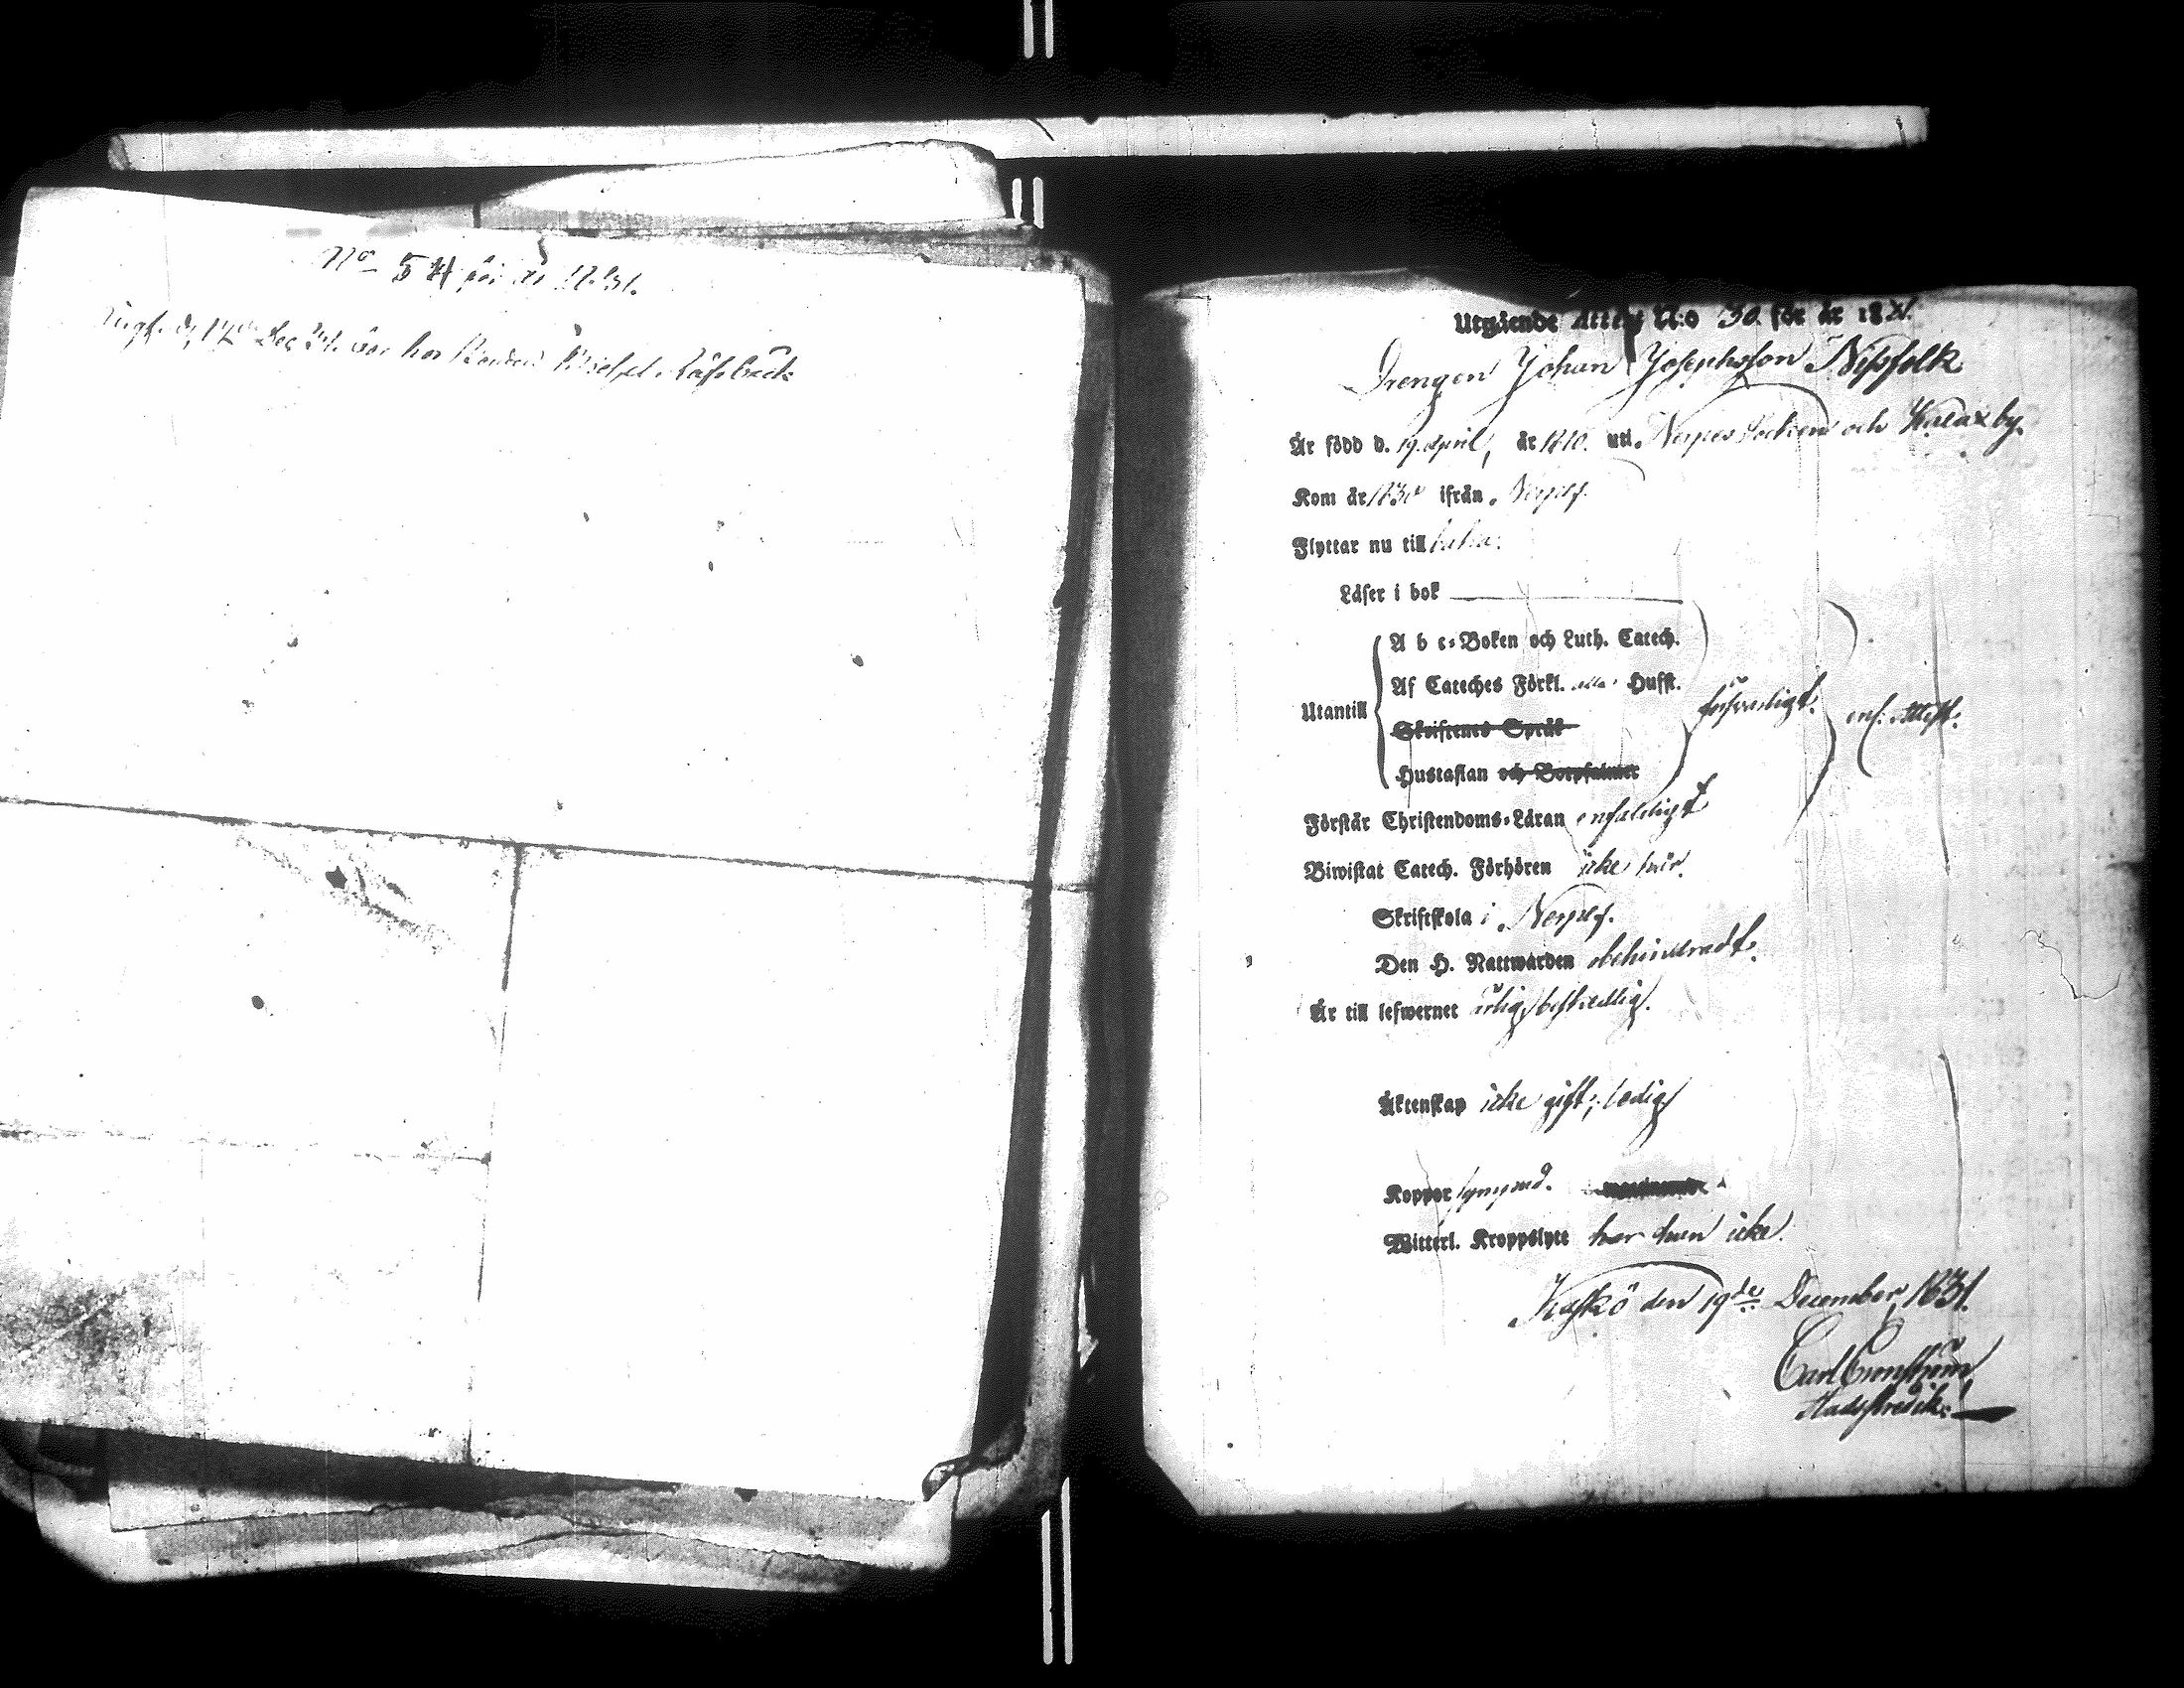 No 54 för år 1831.
d. 17 Dec 31. hos Bonden Michel
Utgående Attest N:o 30. för år 1831.
Drengen Johan Josephsson Nissfolk
Är född d. 19. April, år 1810. uti. Nerpes Socken och Kalax by.
Kom år 1830 ifrån. Nerpes.
Flyttar nu till
Läser i bok
A b c-Boken och Luth. Catech.
Af Cateches Förkl. Husst.
Utantill försvarligt. enl. Attest.
Skriftenes Språk
Hustaflan och Botpsalmer
Förstår Christendoms-Läran enfaldigt
Biwistat Catech. Förhören icke här.
Skriftskola i Nerpes.
Den H. Nattwarden obehindradt.
Är till lefwernet ärlig, beskedlig.
Äktenskap icke gift; ledig
Koppor ympad.
Witterl. Kroppslyte har han icke.
Kaskö den 19de December 1831.
Carl